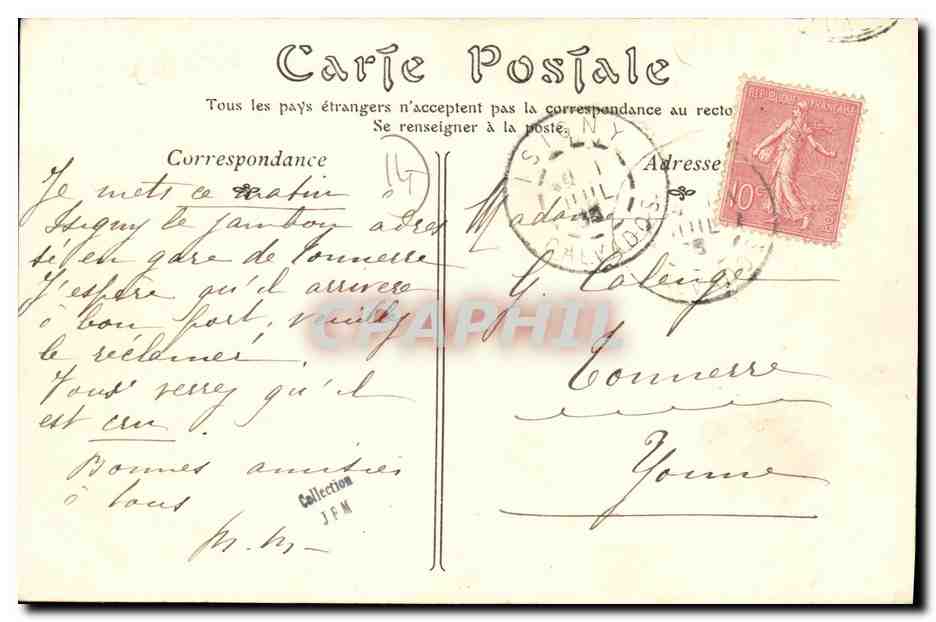 Carte Postale
Tous les pays étrangers n'acceptent pas la correspondance au recto
Se renseigner à la poste.
Correspondance
14
Je mets ce matin à
Isigny le jambon adres
sé en gare de Tonnerre
J'espère qu'il arrivera
à bon port, veuillez
le réclamer.
Vous verrez qu'il
est cru.
Bonnes amitiés
à tous
M. M.
Collection
JPM
Adresse
Madame
G. Calenge
Tonnerre
Yonne
REPUBLIQUE FRANÇAISE
10
POSTES
ISIGNY
CALVADOS
JUIL
CPAPHIL